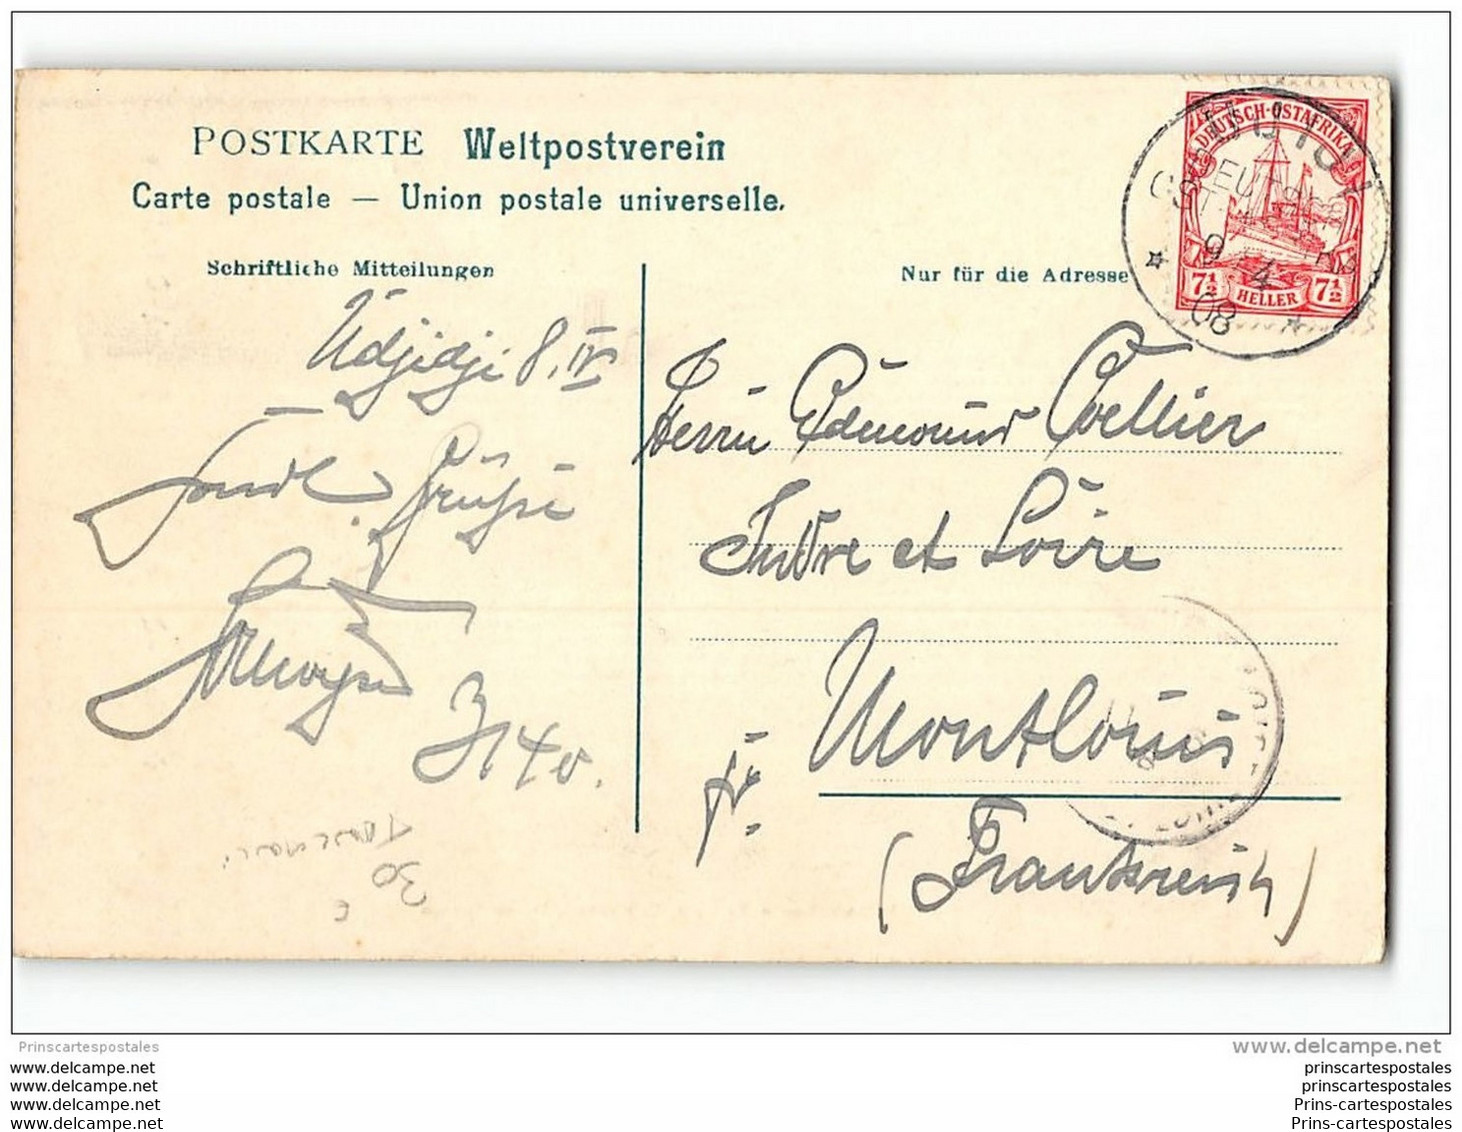 POSTKARTE Weltpostverein
Carte postale — Union postale universelle.
Schriftliche Mitteilungen
Nur für die Adresse
DEUTSCH-OSTAFRIKA
7½ HELLER 7½
9 4
08
Udjidji 8. IV
Grüsse
Herrn Edmound Coellier
Indre et Loire
Montlouis
(Frankreich)
30
Prinscartespostales
www.delcampe.net
www.delcampe.net
www.delcampe.net
www.delcampe.net
www.delcampe.net
prinscartespostales
prinscartespostales
Prins-cartespostales
Prins-cartespostales